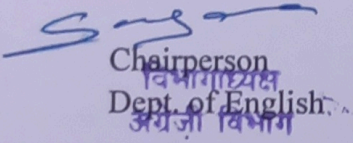 Chairperson
विभागाध्यक्ष
Dept. of English
अंग्रेजी विभाग